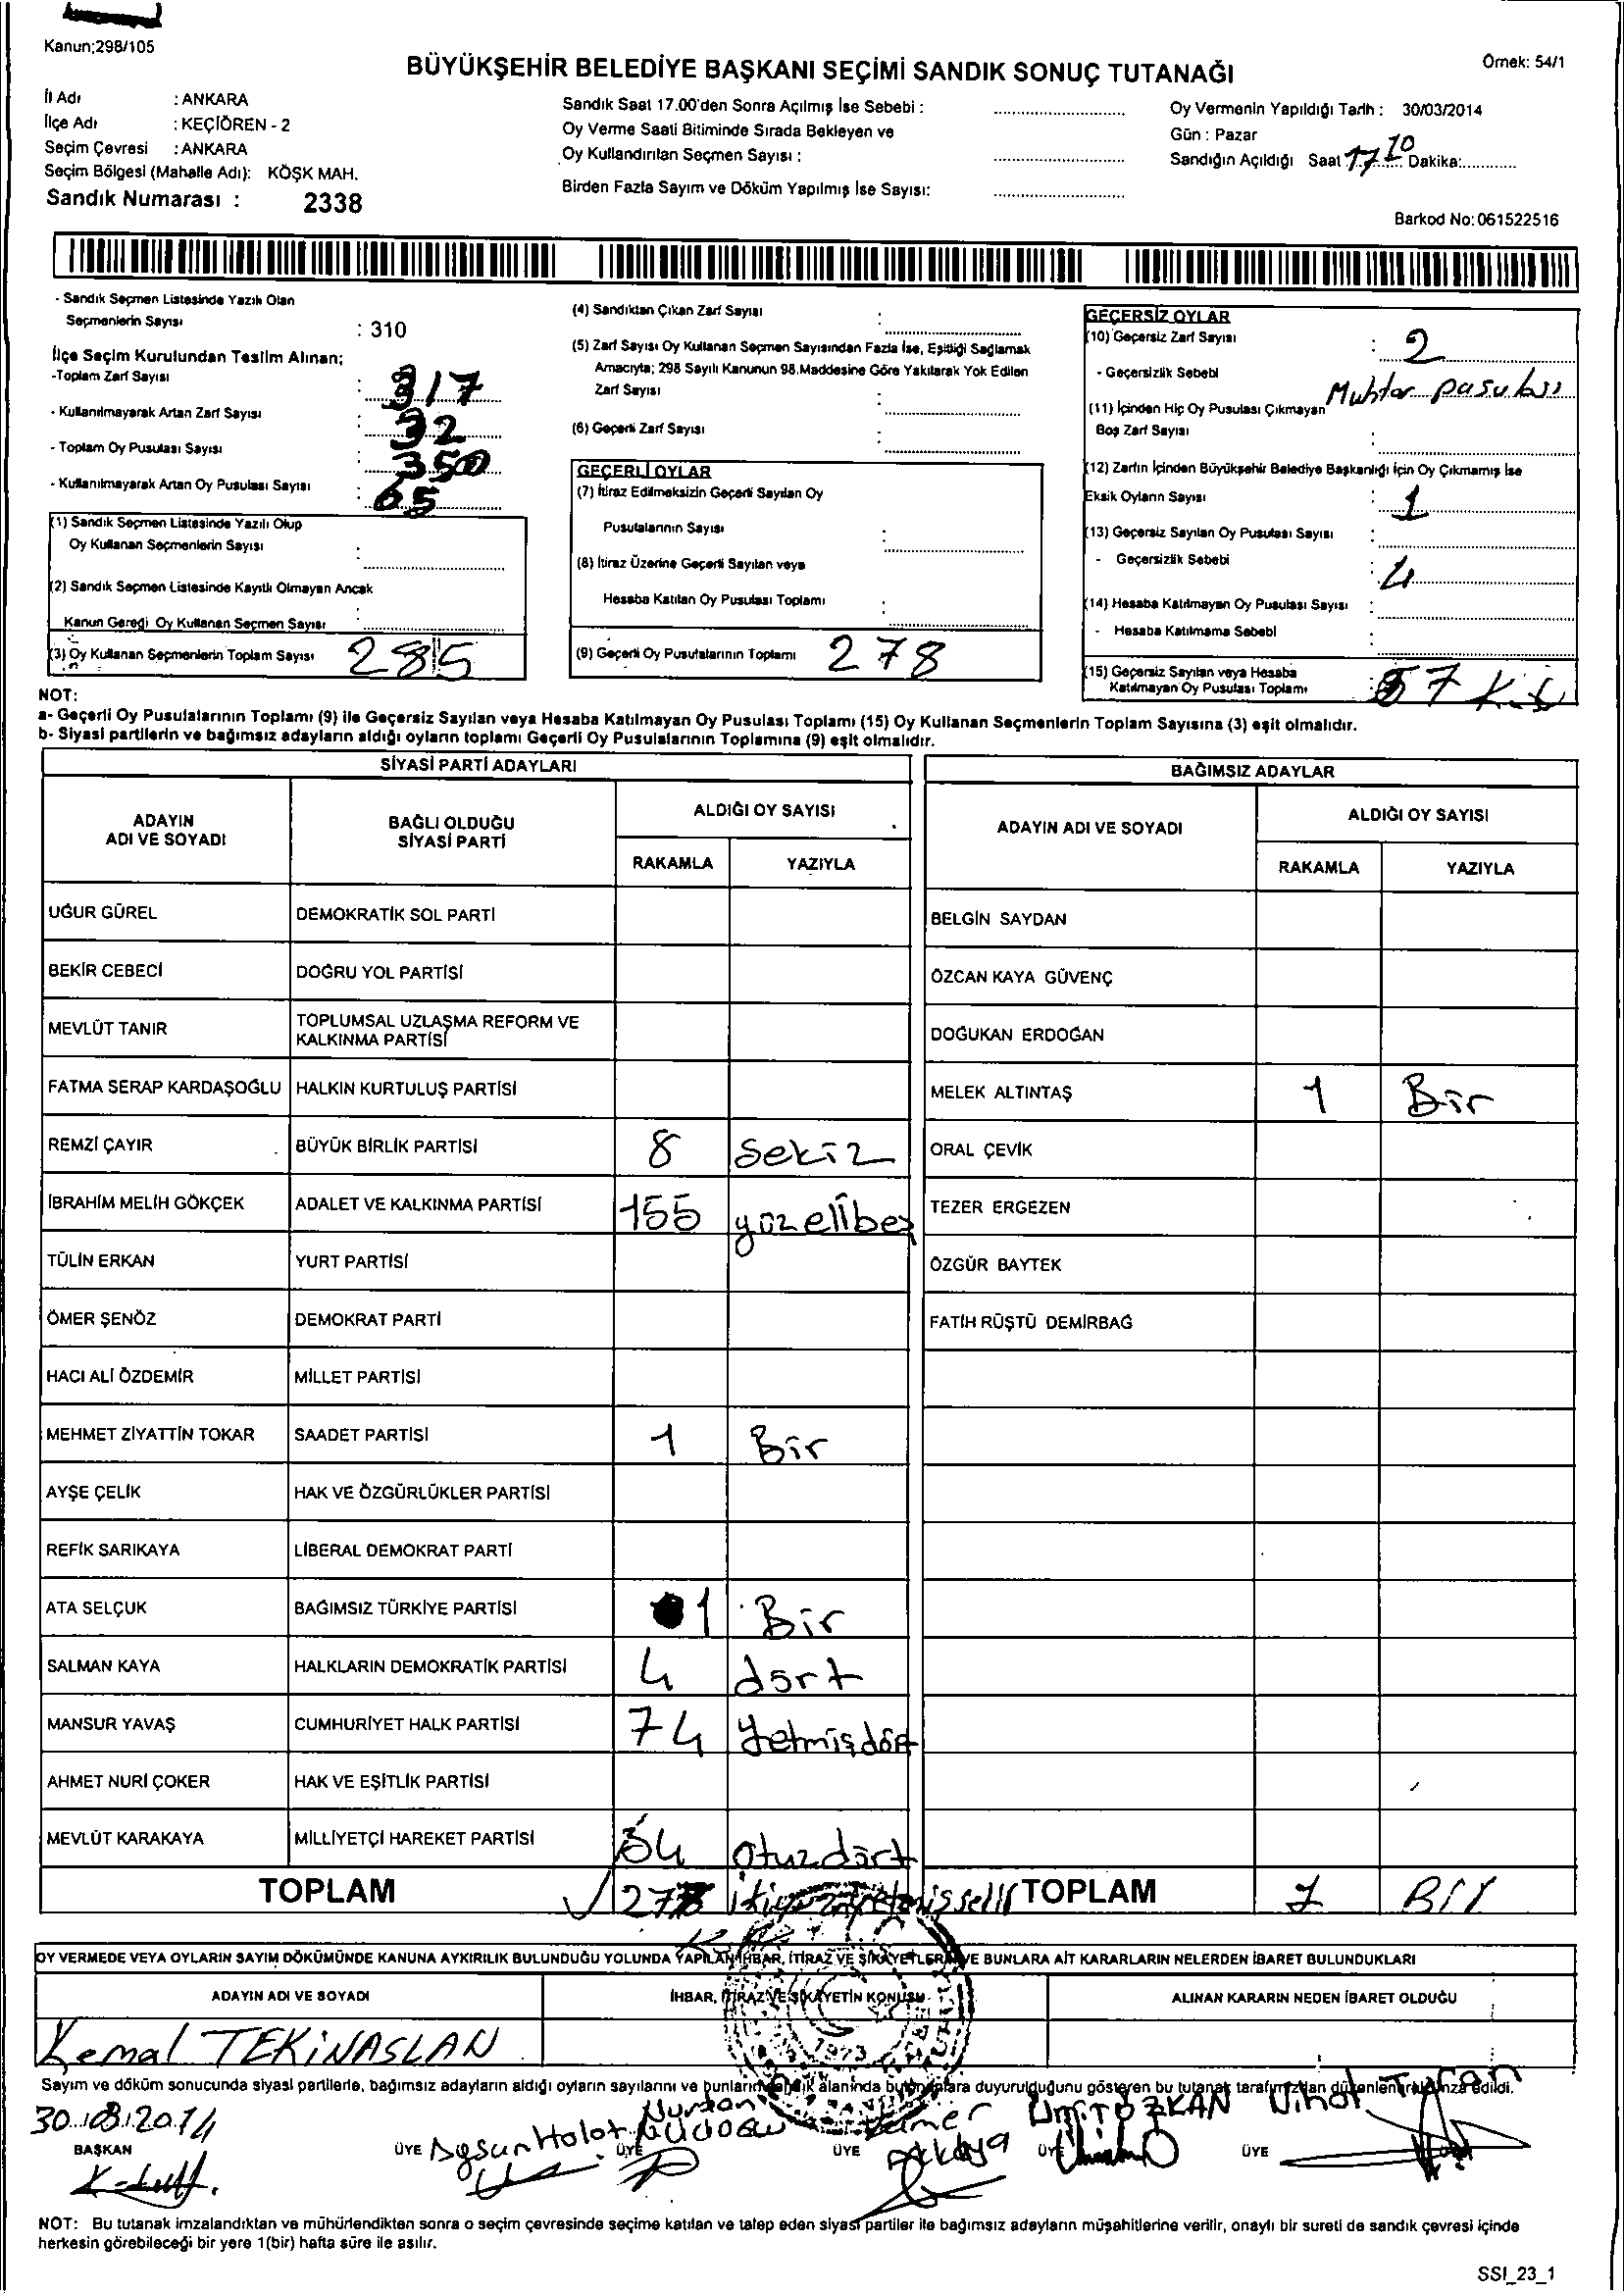 Kanun;298/105
Örnek: 54/1
BÜYÜKŞEHİR BELEDİYE BAŞKANI SEÇİMİ SANDIK SONUÇ TUTANAĞI
İl Adı : ANKARA
İlçe Adı : KEÇİÖREN - 2
Seçim Çevresi : ANKARA
Seçim Bölgesi (Mahalle Adı): KÖŞK MAH.
Sandık Numarası : 2338
Sandık Saat 17.00'den Sonra Açılmış İse Sebebi :
Oy Verme Saati Bitiminde Sırada Bekleyen ve
Oy Kullandırılan Seçmen Sayısı :
Birden Fazla Sayım ve Döküm Yapılmış İse Sayısı:
Oy Vermenin Yapıldığı Tarih : 30/03/2014
Gün : Pazar
Sandığın Açıldığı Saat 17 10 Dakika:
Barkod No: 061522516
- Sandık Seçmen Listesinde Yazılı Olan
Seçmenlerin Sayısı : 310
İlçe Seçim Kurulundan Teslim Alınan;
-Toplam Zarf Sayısı : 317
- Kullanılmayarak Artan Zarf Sayısı : 32
- Toplam Oy Pusulası Sayısı : 350
- Kullanılmayarak Artan Oy Pusulası Sayısı : 65
(1) Sandık Seçmen Listesinde Yazılı Olup
Oy Kullanan Seçmenlerin Sayısı :
(2) Sandık Seçmen Listesinde Kayıtlı Olmayan Ancak
Kanun Gereği Oy Kullanan Seçmen Sayısı :
(3) Oy Kullanan Seçmenlerin Toplam Sayısı 285
(4) Sandıktan Çıkan Zarf Sayısı :
(5) Zarf Sayısı Oy Kullanan Seçmen Sayısından Fazla İse, Eşitliği Sağlamak
Amacıyla; 298 Sayılı Kanunun 98.Maddesine Göre Yakılarak Yok Edilen
Zarf Sayısı :
(6) Geçerli Zarf Sayısı :
GEÇERLİ OYLAR
(7) İtiraz Edilmeksizin Geçerli Sayılan Oy
Pusulalarının Sayısı :
(8) İtiraz Üzerine Geçerli Sayılan veya
Hesaba Katılan Oy Pusulası Toplamı :
(9) Geçerli Oy Pusulalarının Toplamı 278
GEÇERSİZ OYLAR
(10) Geçersiz Zarf Sayısı : 2
- Geçersizlik Sebebi Muhtar pusulası
(11) İçinden Hiç Oy Pusulası Çıkmayan
Boş Zarf Sayısı :
(12) Zarfın İçinden Büyükşehir Belediye Başkanlığı İçin Oy Çıkmamış İse
Eksik Oyların Sayısı : 1
(13) Geçersiz Sayılan Oy Pusulası Sayısı :
- Geçersizlik Sebebi : 4
(14) Hesaba Katılmayan Oy Pusulası Sayısı :
- Hesaba Katılmama Sebebi :
(15) Geçersiz Sayılan veya Hesaba
Katılmayan Oy Pusulası Toplamı : 7
NOT:
a- Geçerli Oy Pusulalarının Toplamı (9) ile Geçersiz Sayılan veya Hesaba Katılmayan Oy Pusulası Toplamı (15) Oy Kullanan Seçmenlerin Toplam Sayısına (3) eşit olmalıdır.
b- Siyasi partilerin ve bağımsız adayların aldığı oyların toplamı Geçerli Oy Pusulalarının Toplamına (9) eşit olmalıdır.
SİYASİ PARTİ ADAYLARI
ADAYIN ADI VE SOYADI BAĞLI OLDUĞU SİYASİ PARTİ ALDIĞI OY SAYISI
RAKAMLA YAZIYLA
UĞUR GÜREL DEMOKRATİK SOL PARTİ
BEKİR CEBECİ DOĞRU YOL PARTİSİ
MEVLÜT TANIR TOPLUMSAL UZLAŞMA REFORM VE KALKINMA PARTİSİ
FATMA SERAP KARDAŞOĞLU HALKIN KURTULUŞ PARTİSİ
REMZİ ÇAYIR BÜYÜK BİRLİK PARTİSİ 8 sekiz
İBRAHİM MELİH GÖKÇEK ADALET VE KALKINMA PARTİSİ 155 yüzellibeş
TÜLİN ERKAN YURT PARTİSİ
ÖMER ŞENÖZ DEMOKRAT PARTİ
HACI ALİ ÖZDEMİR MİLLET PARTİSİ
MEHMET ZİYATTİN TOKAR SAADET PARTİSİ 1 Bir
AYŞE ÇELİK HAK VE ÖZGÜRLÜKLER PARTİSİ
REFİK SARIKAYA LİBERAL DEMOKRAT PARTİ
ATA SELÇUK BAĞIMSIZ TÜRKİYE PARTİSİ 1 Bir
SALMAN KAYA HALKLARIN DEMOKRATİK PARTİSİ 4 dört
MANSUR YAVAŞ CUMHURİYET HALK PARTİSİ 74 yetmişdört
AHMET NURİ ÇOKER HAK VE EŞİTLİK PARTİSİ
MEVLÜT KARAKAYA MİLLİYETÇİ HAREKET PARTİSİ 34 otuzdört
TOPLAM
BAĞIMSIZ ADAYLAR
ADAYIN ADI VE SOYADI ALDIĞI OY SAYISI
RAKAMLA YAZIYLA
BELGİN SAYDAN
ÖZCAN KAYA GÜVENÇ
DOĞUKAN ERDOĞAN
MELEK ALTINTAŞ 1 Bir
ORAL ÇEVİK
TEZER ERGEZEN
ÖZGÜR BAYTEK
FATİH RÜŞTÜ DEMİRBAĞ
TOPLAM 1 Bir
OY VERMEDE VEYA OYLARIN SAYIM DÖKÜMÜNDE KANUNA AYKIRILIK BULUNDUĞU YOLUNDA YAPILAN İHBAR, İTİRAZ VE ŞİKAYETLER VE BUNLARA AİT KARARLARIN NELERDEN İBARET BULUNDUKLARI
ADAYIN ADI VE SOYADI İHBAR, İTİRAZ VE ŞİKAYETİN KONUSU ALINAN KARARIN NEDEN İBARET OLDUĞU
Kemal TEKİNASLAN
Sayım ve döküm sonucunda siyasi partilerle, bağımsız adayların aldığı oyların sayılarını ve bunların sandık alanında bulunanlara duyurulduğunu gösteren bu tutanak tarafımızdan düzenlenerek imza edildi.
30.03.2014
Nurdan
ÜMİT ÖZKAN
Nihat Turan
BAŞKAN ÜYE Aysun Holot ÜYE ÜYE Akkaya ÜYE ÜYE
NOT: Bu tutanak imzalandıktan ve mühürlendikten sonra o seçim çevresinde seçime katılan ve talep eden siyasi partiler ile bağımsız adayların müşahitlerine verilir, onaylı bir sureti de sandık çevresi içinde
herkesin görebileceği bir yere 1(bir) hafta süre ile asılır.
SSI_23_1